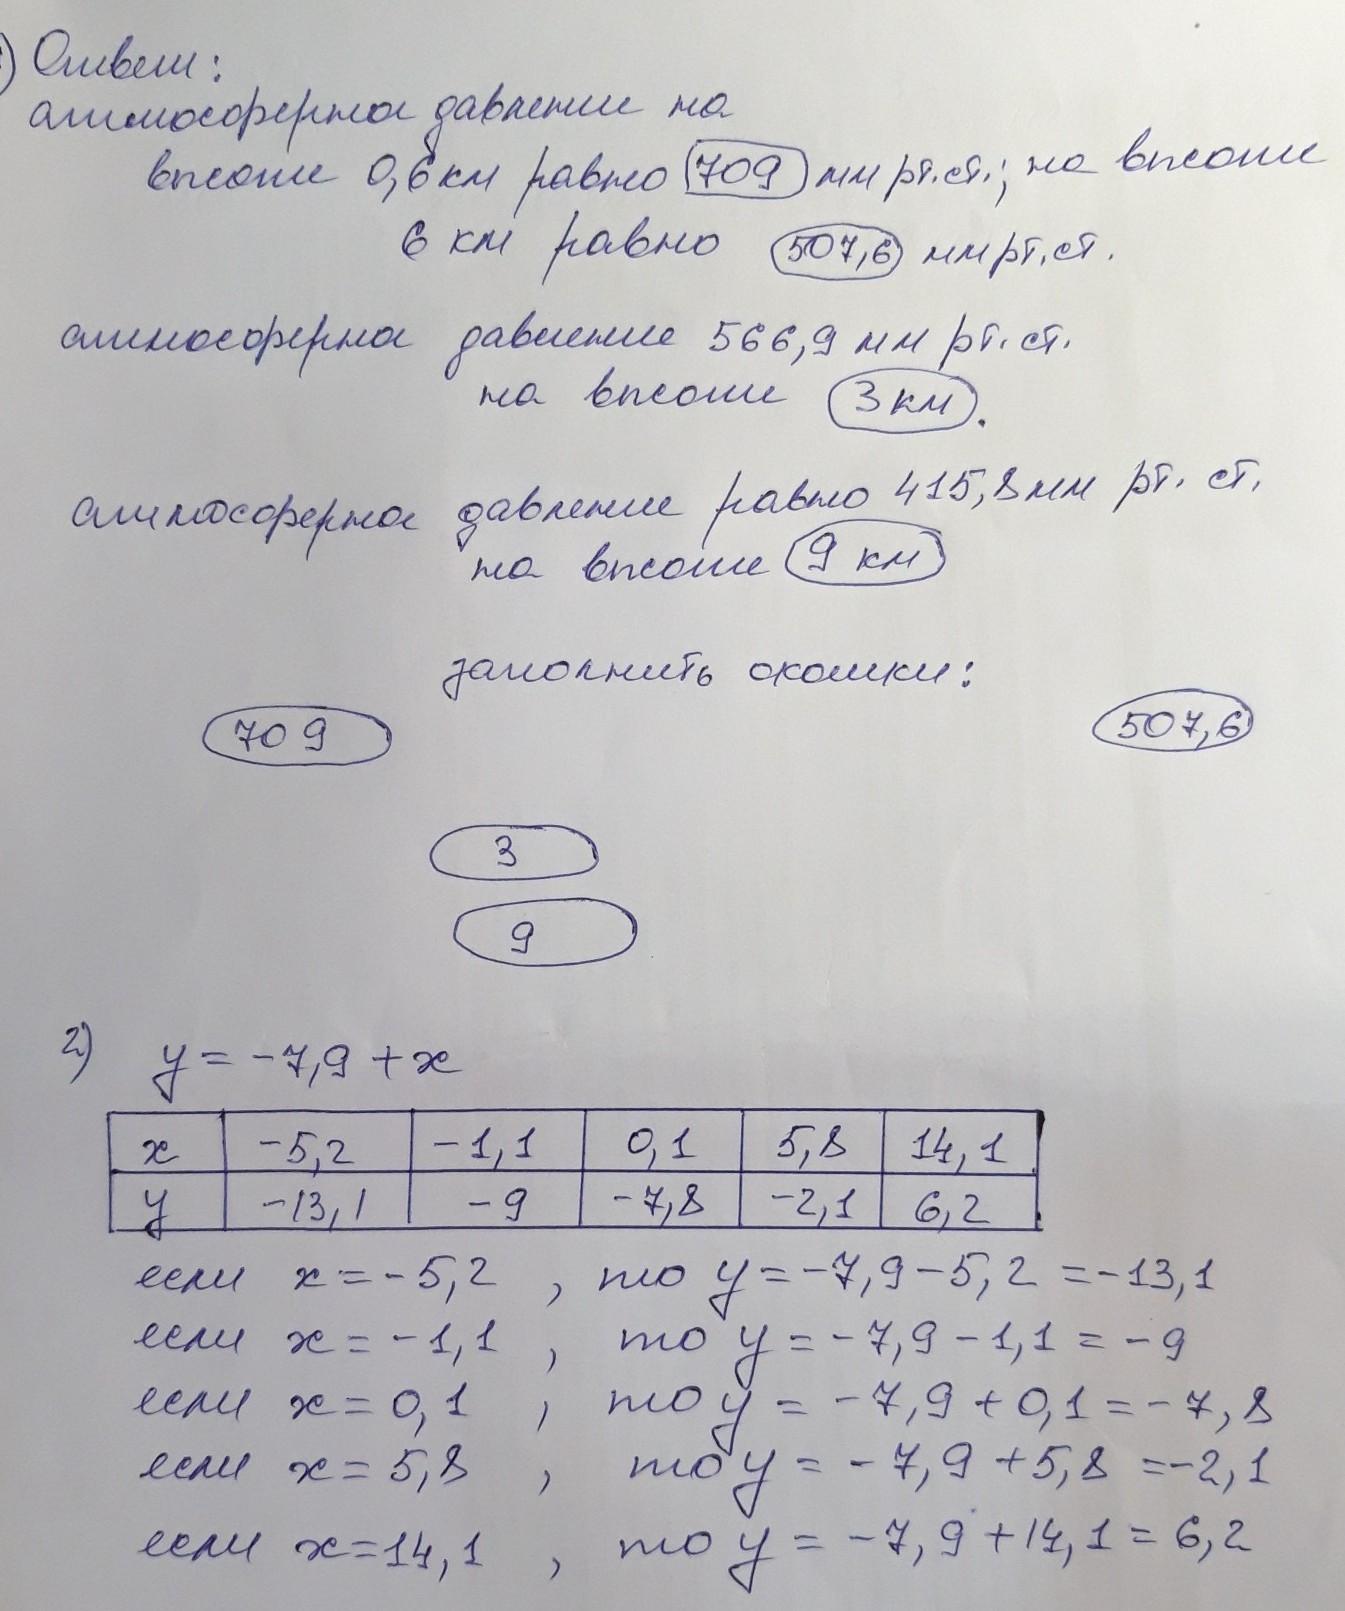 ) Ответ:
атмосферное давление на
высоте 0,6 км равно 709 мм рт.ст.; на высоте
6 км равно 507,6 мм рт.ст.
атмосферное давление 566,9 мм рт.ст.
на высоте 3 км.
атмосферное давление равно 415,8 мм рт. ст.
на высоте 9 км
заполнить окошки:
709 507,6
3
9
2) y = -7,9 + x
x -5,2 -1,1 0,1 5,8 14,1
y -13,1 -9 -7,8 -2,1 6,2
если x = -5,2 , то y = -7,9 - 5,2 = -13,1
если x = -1,1 , то y = -7,9 - 1,1 = -9
если x = 0,1 , то y = -7,9 + 0,1 = -7,8
если x = 5,8 , то y = -7,9 + 5,8 = -2,1
если x = 14,1 , то y = -7,9 + 14,1 = 6,2